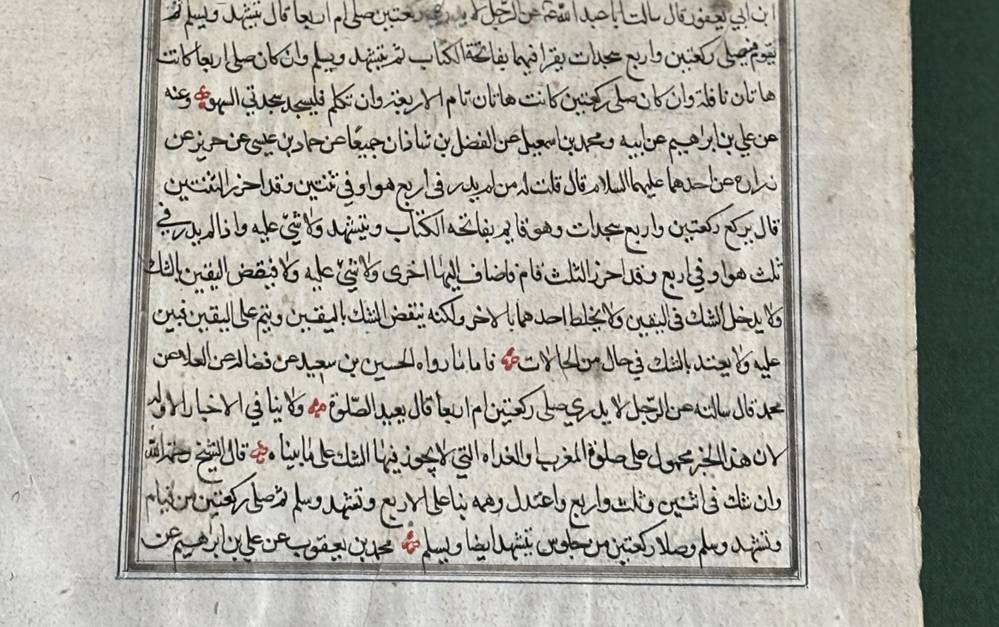 ابن ابي يعفور قال سالت ابا عبد الله عن الرجل لا يدري ركعتين صلى ام اربعا قال يتشهد ويسلم ثم
يقوم فيصلي ركعتين واربع سجدات يقرا فيهما بفاتحة الكتاب ثم يتشهد ويسلم وان كان صلى اربعا كانت
هاتان نافلة وان كان صلى ركعتين كانت هاتان تمام الاربعة وان تكلم فليسجد سجدتي السهو وعنه
عن علي بن ابرهيم عن ابيه ومحمد بن اسمعيل عن الفضل بن شاذان جميعا عن حماد بن عيسى عن حريز عن
زرارة عن احدهما عليهما السلام قال قلت له من لم يدر في اربع هو او في ثنتين وقد احرز الثنتين
قال يركع ركعتين واربع سجدات وهو قايم بفاتحه الكتاب ويتشهد ولا شئ عليه واذا لم يدر في
ثلث هو او في اربع وقد احرز الثلث قام فاضاف اليها اخرى ولا شئ عليه ولا ينقض اليقين بالشك
ولا يدخل الشك في اليقين ولا يخلط احدهما بالاخر ولكنه ينقض الشك باليقين ويتم على اليقين فيبني
عليه ولا يعتد بالشك في حال من الحالات فاما ما رواه الحسين بن سعيد عن فضالة عن العلا عن
محمد قال سالته عن الرجل لا يدري صلى ركعتين ام اربعا قال يعيد الصلوة ولا ينافي الاخبار الاوله
لان هذا الخبر محمول على صلوة المغرب والغداه التي لا يجوز فيها الشك على ما بيناه قال الشيخ رحمه الله
وان شك في اثنتين وثلث واربع واعتدل وهمه بنا على الاربع وتشهد وسلم ثم صلى ركعتين من قيام
وتشهد وسلم وصلا ركعتين من جلوس يتشهد ايضا ويسلم محمد بن يعقوب عن علي بن ابرهيم عن